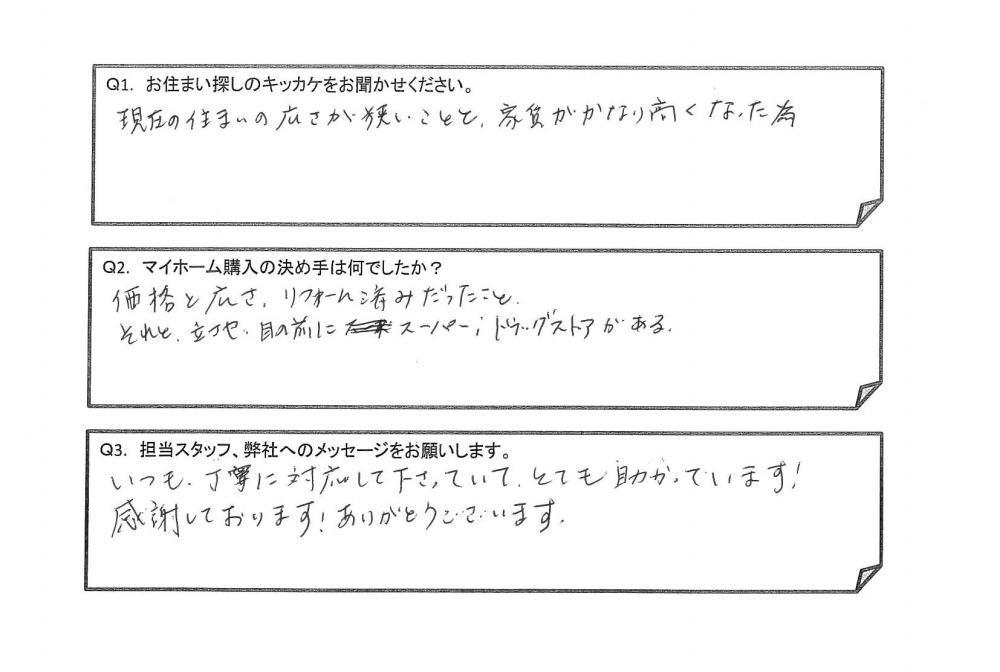 Q1. お住まい探しのキッカケをお聞かせください。
現在の住まいの広さが狭いことと、家賃がかなり高くなった為
Q2. マイホーム購入の決め手は何でしたか？
価格と広さ、リフォーム済みだったこと。
それと、立地、目の前にスーパー、ドラッグストアがある。
Q3. 担当スタッフ、弊社へのメッセージをお願いします。
いつも、丁寧に対応して下さっていて、とても助かっています！
感謝しております！ありがとうございます。